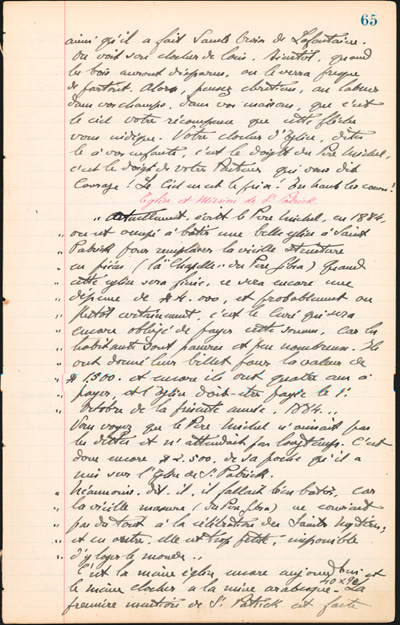 65
ainsi qu'il a fait Sainte Croix de Lafontaine.
On voit son clocher de loin. Bientôt, quand
les bois auront disparus, on le verra presque
de partout. Alors, pensez chrétiens, au labeur
dans vos champs, dans vos maisons, que c'est
le ciel votre récompense que cette flèche
vous indique. Votre clocher d'église, dites
le à vos enfants, c'est le doigt du Père Michel,
c'est le doigt de votre Pasteur qui vous dit
Courage! Le Ciel en est le prix! En haut les cœurs!
Eglise et Mission de St Patrick.
" Actuellement, écrit le Père Michel, en 1884,
on est occupé à bâtir une belle église à Saint
" Patrick pour remplacer la vieille
" en pièces (la Chapelle du Père Libra) Quand
" cette église sera finie, ce sera encore une
" dépense de $4.000, et probablement ou
" plutôt certainement, c'est le Curé qui sera
" encore obligé de payer cette somme, car les
" habitants sont pauvres et peu nombreux. Ils
" ont donné leur billet pour la valeur de
" $1500. et encore ils ont quatre ans à
" payer, et l'église doit-être payée le 1er
" Octobre de la présente année, 1884...
Vous voyez que le Père Michel n'aimait pas
les dettes et n'attendait pas longtemps. C'est
donc encore $2.500, de sa poche qu'il a
mis sur l'Eglise de St. Patrick.
" Néanmoins, dit-il, il fallait bien bâtir, car
" la vieille masure (du Père Libra) ne convient
" pas du tout à la célébration des Saints Mystères,
" et en outre, elle est trop petite, impossible
" d'y loger le monde..
C'est la même église, encore aujourd'hui et
40 x 90
le même clocher à la mine arabesque. La
première mention de St. Patrick est faite